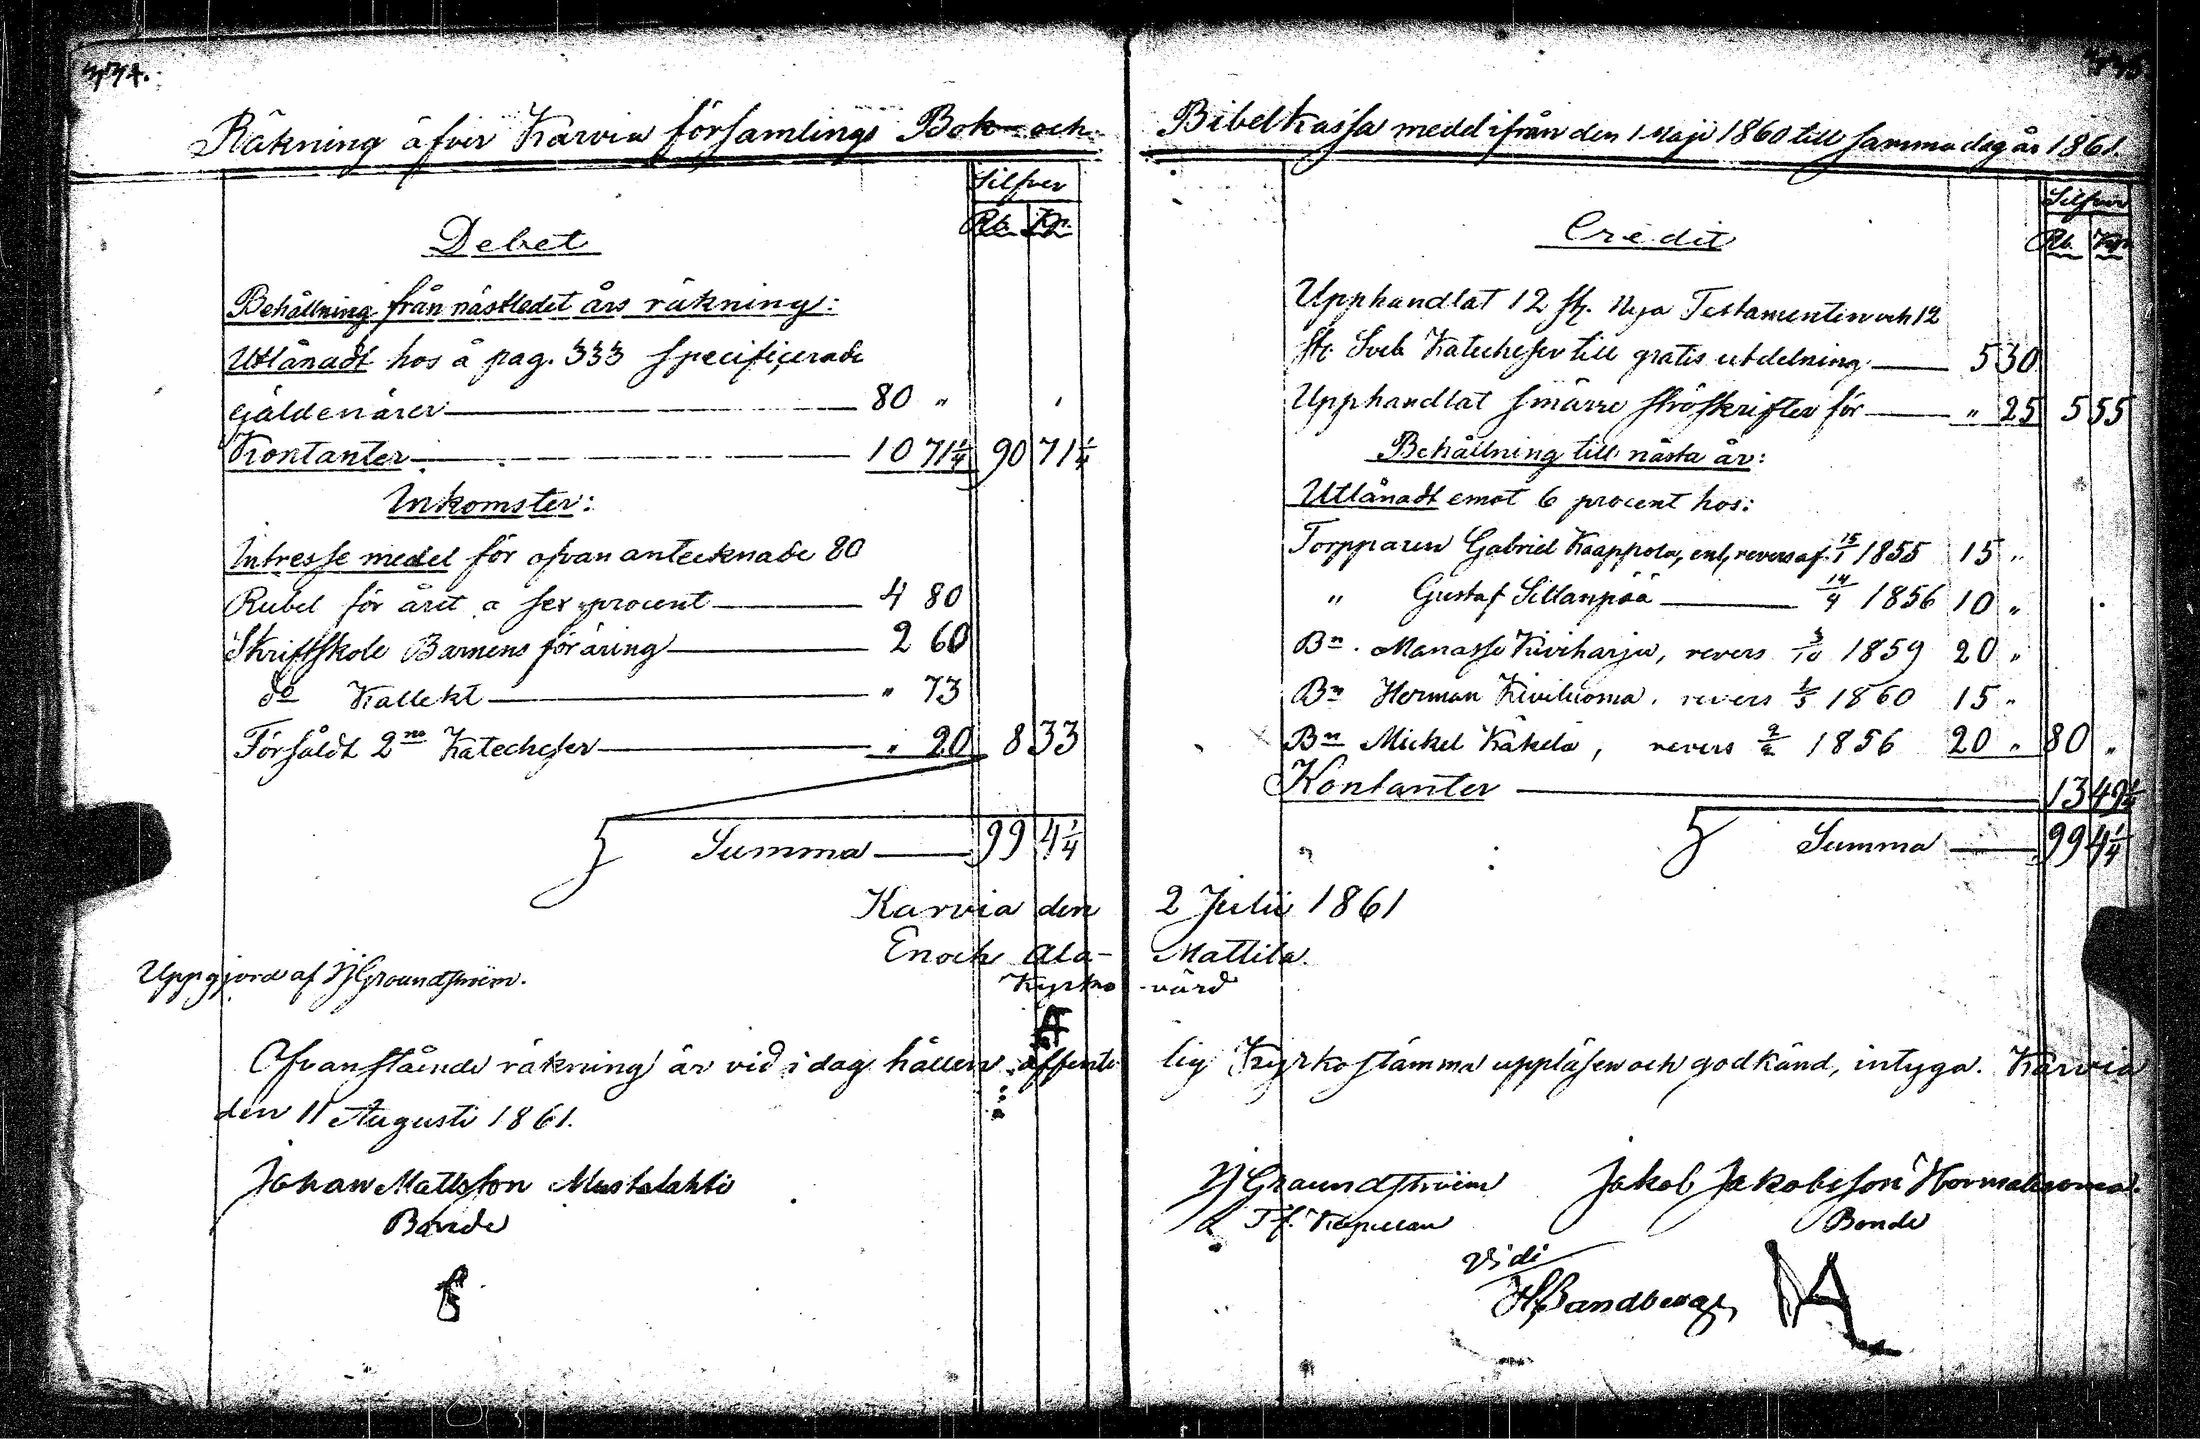 334.
Räkning öfver Karvia församlings Bok- och
Silfver
Rb. Kp.
Debet
Behållning från nästledet års räkning:
Utlånadt hos å pag. 333 specificerade
gäldenärer 80 "
Kontanter 10 71 1/4 90 71 1/4
Inkomster:
Intresse medel för ofvan antecknade 80
Rubel för året a sex procent 4 80
Skriftskole Barnens föräring 2 60
do Kallekt " 73
Försåldt 2ne Katecheser " 20 8 33
Summa 99 4 1/4
Karvia den
Enoch Ala-
Uppgjord af Groundstroem.
Kyrko
Ofvanstående räkning är vid i dag hållen offent
den 11 Augusti 1861.
Johan Mattsson Mustalahti
Bonde
Bibelkassa medel ifrån den 1 Maji 1860 till samma dag år 1861.
Silfver
Rb. Kp.
Credit
Upphandlat 12 st. Nya Testamenten och 12
st. Sveb. Katecheser till gratis utdelning 5 30
Upphandlat smärre ströskrifter för " 25 5 55
Behållning till nästa år:
Utlånadt emot 6 procent hos:
Torpparen Gabriel Kaappola, enl. revers af 15/1 1855 15 "
" Gustaf Sillanpää 14/4 1856 10 "
Bn. Manasse Kiviharju, revers 3/10 1859 20 "
Bn Herman Kiviluoma, revers 1/5 1860 15 "
Bn Mickel Käkelä, revers 2/2 1856 20 " 80 "
Kontanter 13 49 1/4
Summa 99 4 1/4
2 Julii 1861
Mattila.
-värd
lig Kyrkostämma uppläsen och godkänd, intyga. Karvia
Groundstroem Jakob Jakobsson Hormaluoma.
Tf. Kapellan Bonde
Vidi
Sandberg